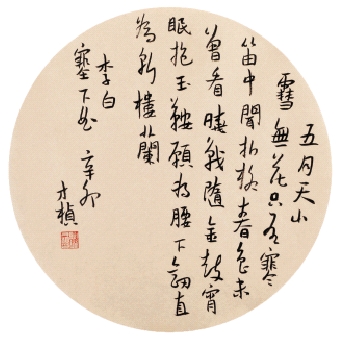 五月天山
雪無花只有寒
笛中聞折柳春色未
曾看曉戰隨金鼓宵
眠抱玉鞍願將腰下劍直
為斬樓蘭
李白
塞下曲 辛卯